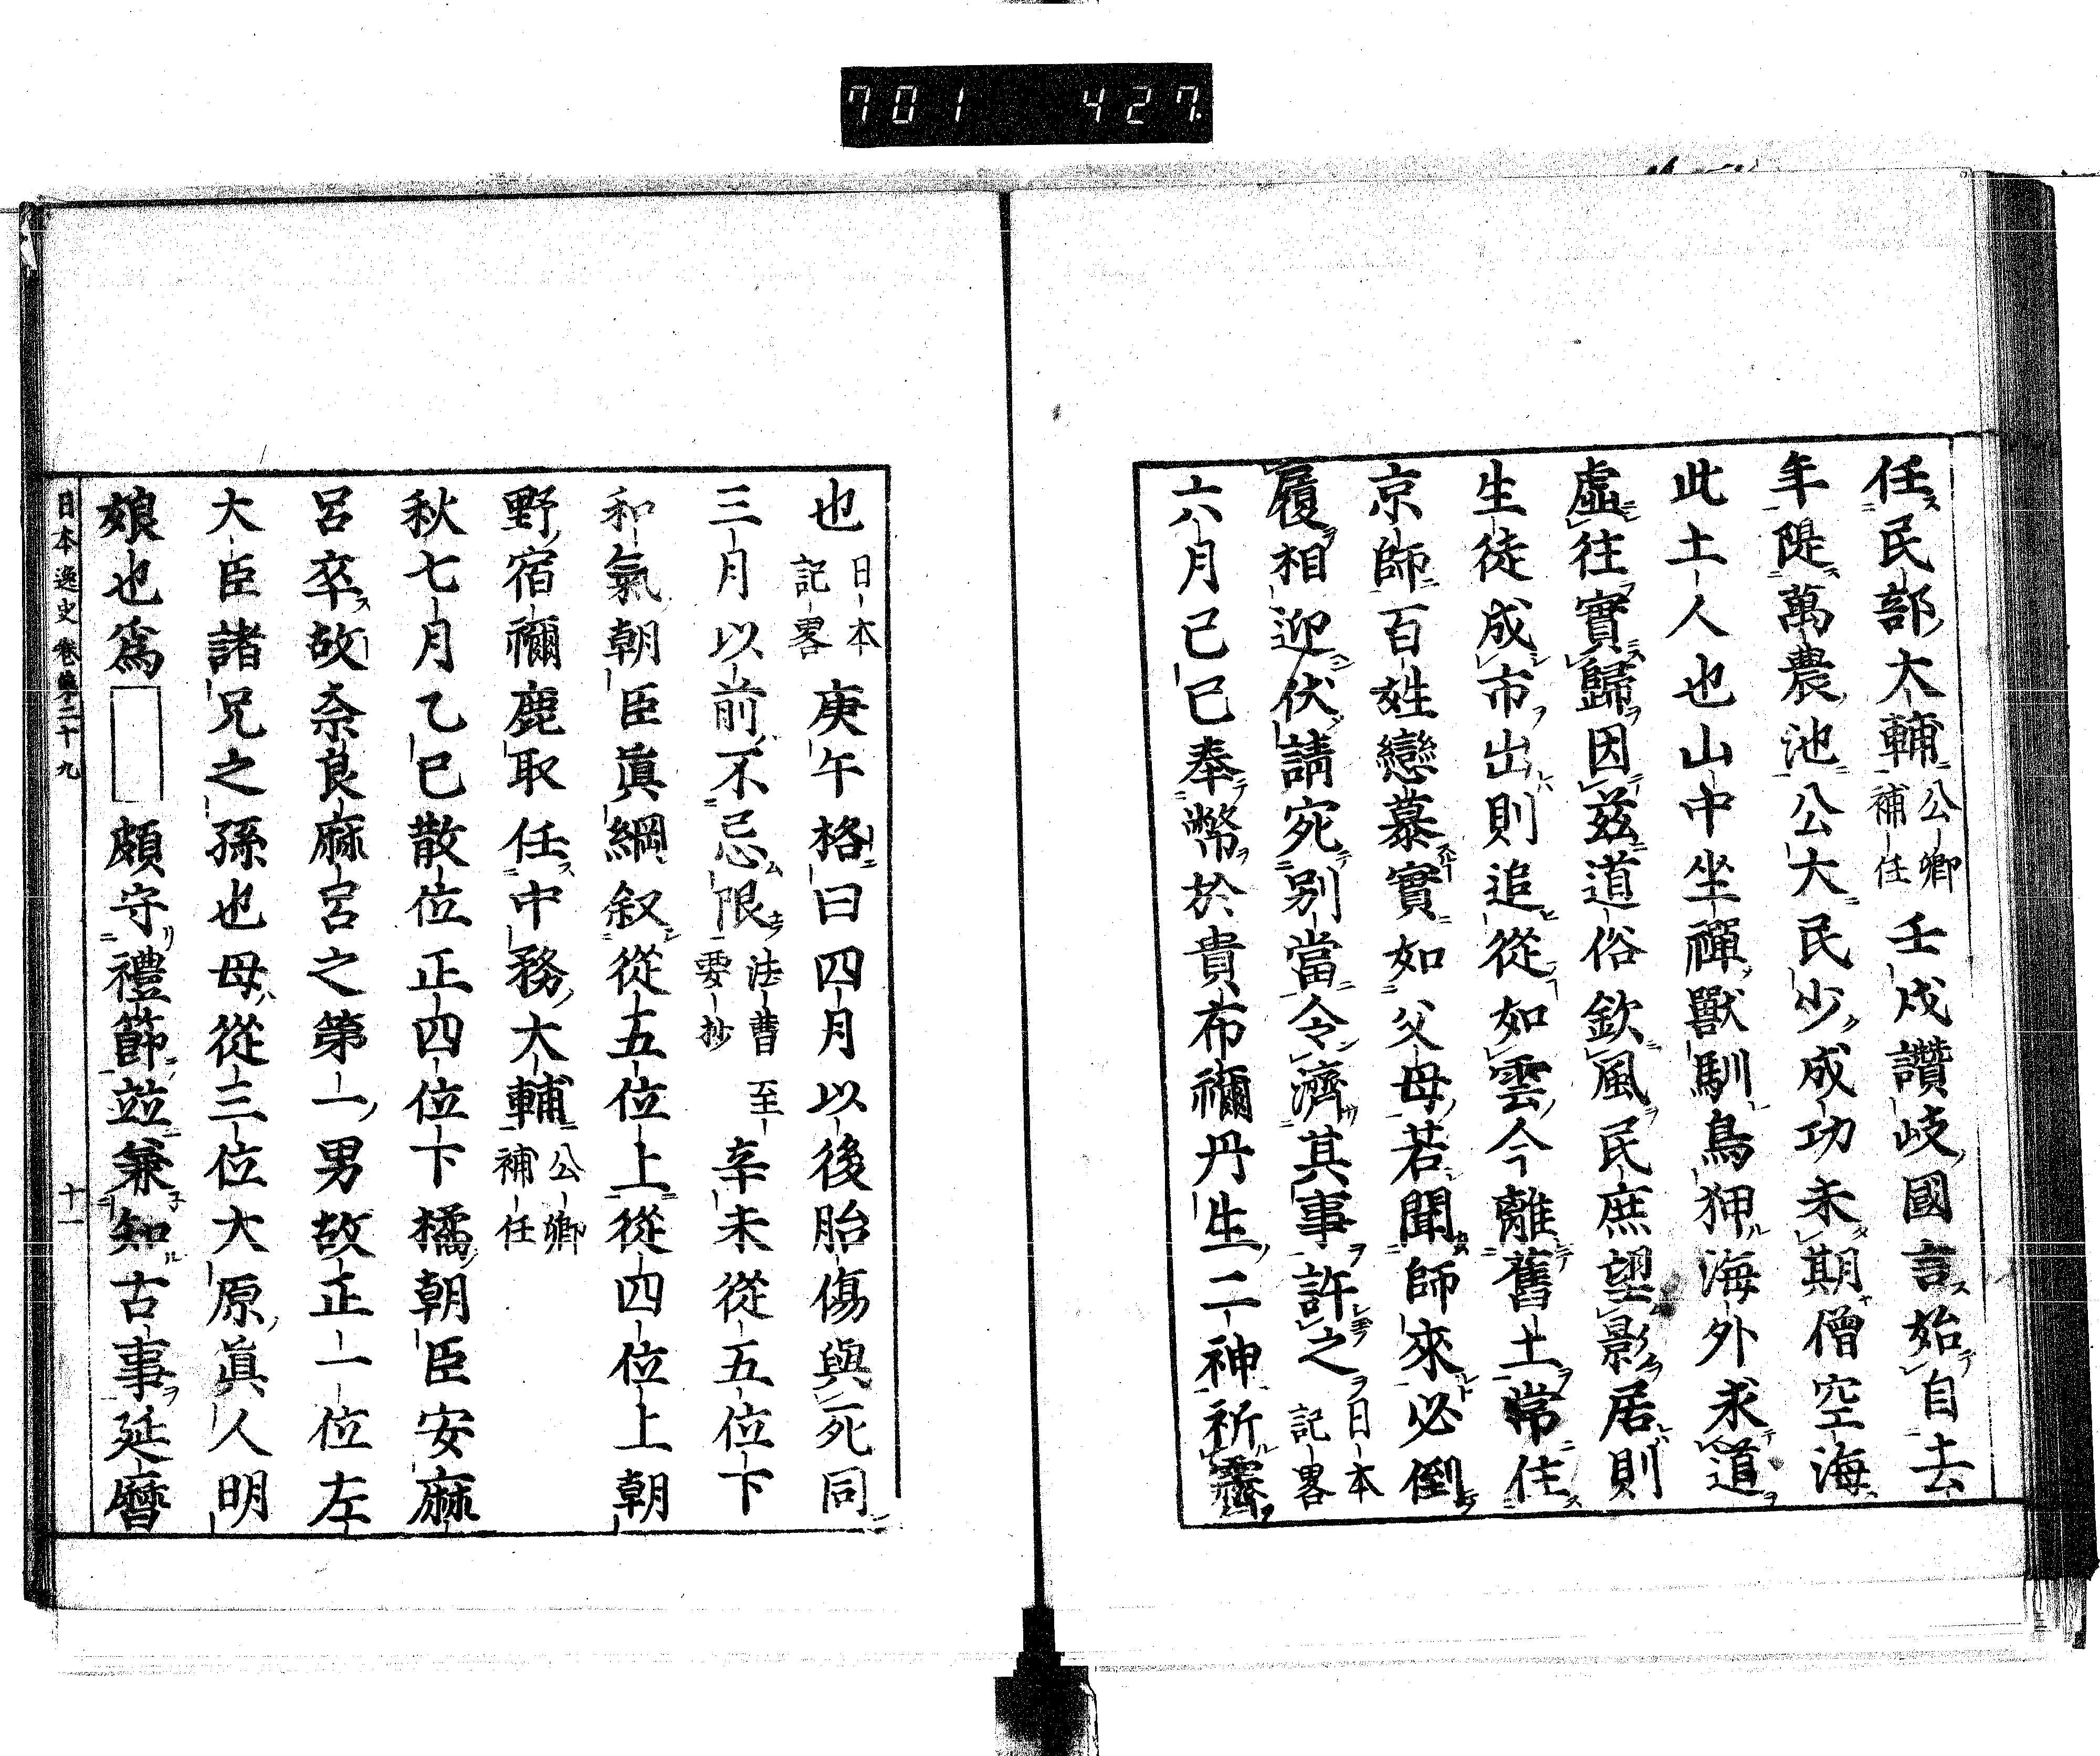 701 427
任民部大輔公卿補任壬戌讚岐國言始自去
年隄萬農池公大民少成功未期僧空海
此土人也山中坐禪獸馴鳥狎海外求道
虛往實歸因茲道俗欽風民庶望影居則
生徒成市出則追從如雲今離舊土常住
京師百姓戀慕實如父母若聞師來必倒
履相迎伏請宛別當令濟其事許之日本記畧
六月己巳奉幣於貴布禰丹生二神祈霽
也日本記畧庚午格曰四月以後胎傷與死同
三月以前不忌限法曹至要抄辛未從五位下
和氣朝臣眞綱叙從五位上從四位上朝
野宿禰鹿取任中務大輔公卿補任
秋七月乙巳散位正四位下橘朝臣安麻
呂卒故奈良麻呂之第一男故正一位左
大臣諸兄之孫也母從三位大原眞人明
娘也爲頗守禮節並兼知古事延曆
日本逸史卷第二十九 十一